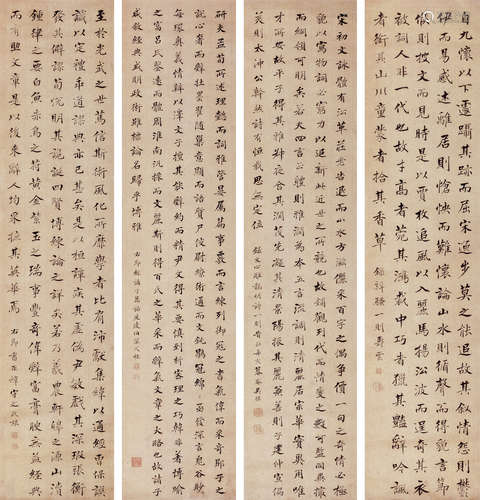 自九懷以下遽躡其跡而屈宋逸步莫之能追故其敘情怨則鬱
伊而易感述離居則愴怏而難懷論山水則循聲而得貌言節
候則披文而見時是以賈枚追風以入麗馬揚沿波而得奇其衣
被詞人非一代也故才高者菀其鴻裁中巧者獵其豔辭吟諷
者銜其山川童蒙者拾其香草 錄辨騷一則
宋初文詠體有沿革莊老告退而山水方滋儷采百字之偶爭價一句之奇情必極
貌以寫物詞必窮力以追新此近世之所競也故鋪觀列代而情變之數可監撮舉同異
而綱領之要可明矣若夫四言正體雅潤為本五言流調清麗居宗華實異用惟
才所安故平子得其雅叔夜含其潤茂先凝其清景陽振其麗兼善則子建仲宣偏
美則太沖公幹然詩有恆裁思無定位 錄文心雕龍明詩一則
研夫孟荀所述理懿而詞雅管晏屬篇事覈而言練列御寇之書氣偉而采奇鄒子之
說心奢而辭壯墨翟隨巢意顯而語質尸佼尉繚術通而文鈍鶡冠綿綿亟發深言鬼谷眇眇
每環奧義情辨以澤文子擅其能辭約而精尹文得其要慎到析密理之巧韓非著博喻
之富呂氏鑒遠而體周淮南汎採而文麗斯則得百氏之華采而文章之大略也故諸子
至於光武之世篤信斯術風化所靡學者比肩沛獻集緯以通經曹褒撰
讖以定禮乖道謬典亦已甚矣是以桓譚疾其虛偽尹敏戲其深瑕張衡
發其僻謬荀悅明其詭誕四賢博練論之詳矣若乃羲農軒皞之源山瀆
鍾律之要白魚赤烏之符黃金紫玉之瑞事豐奇偉辭富膏腴無益經典
而有助文章是以後來辭人均采摭其英華焉